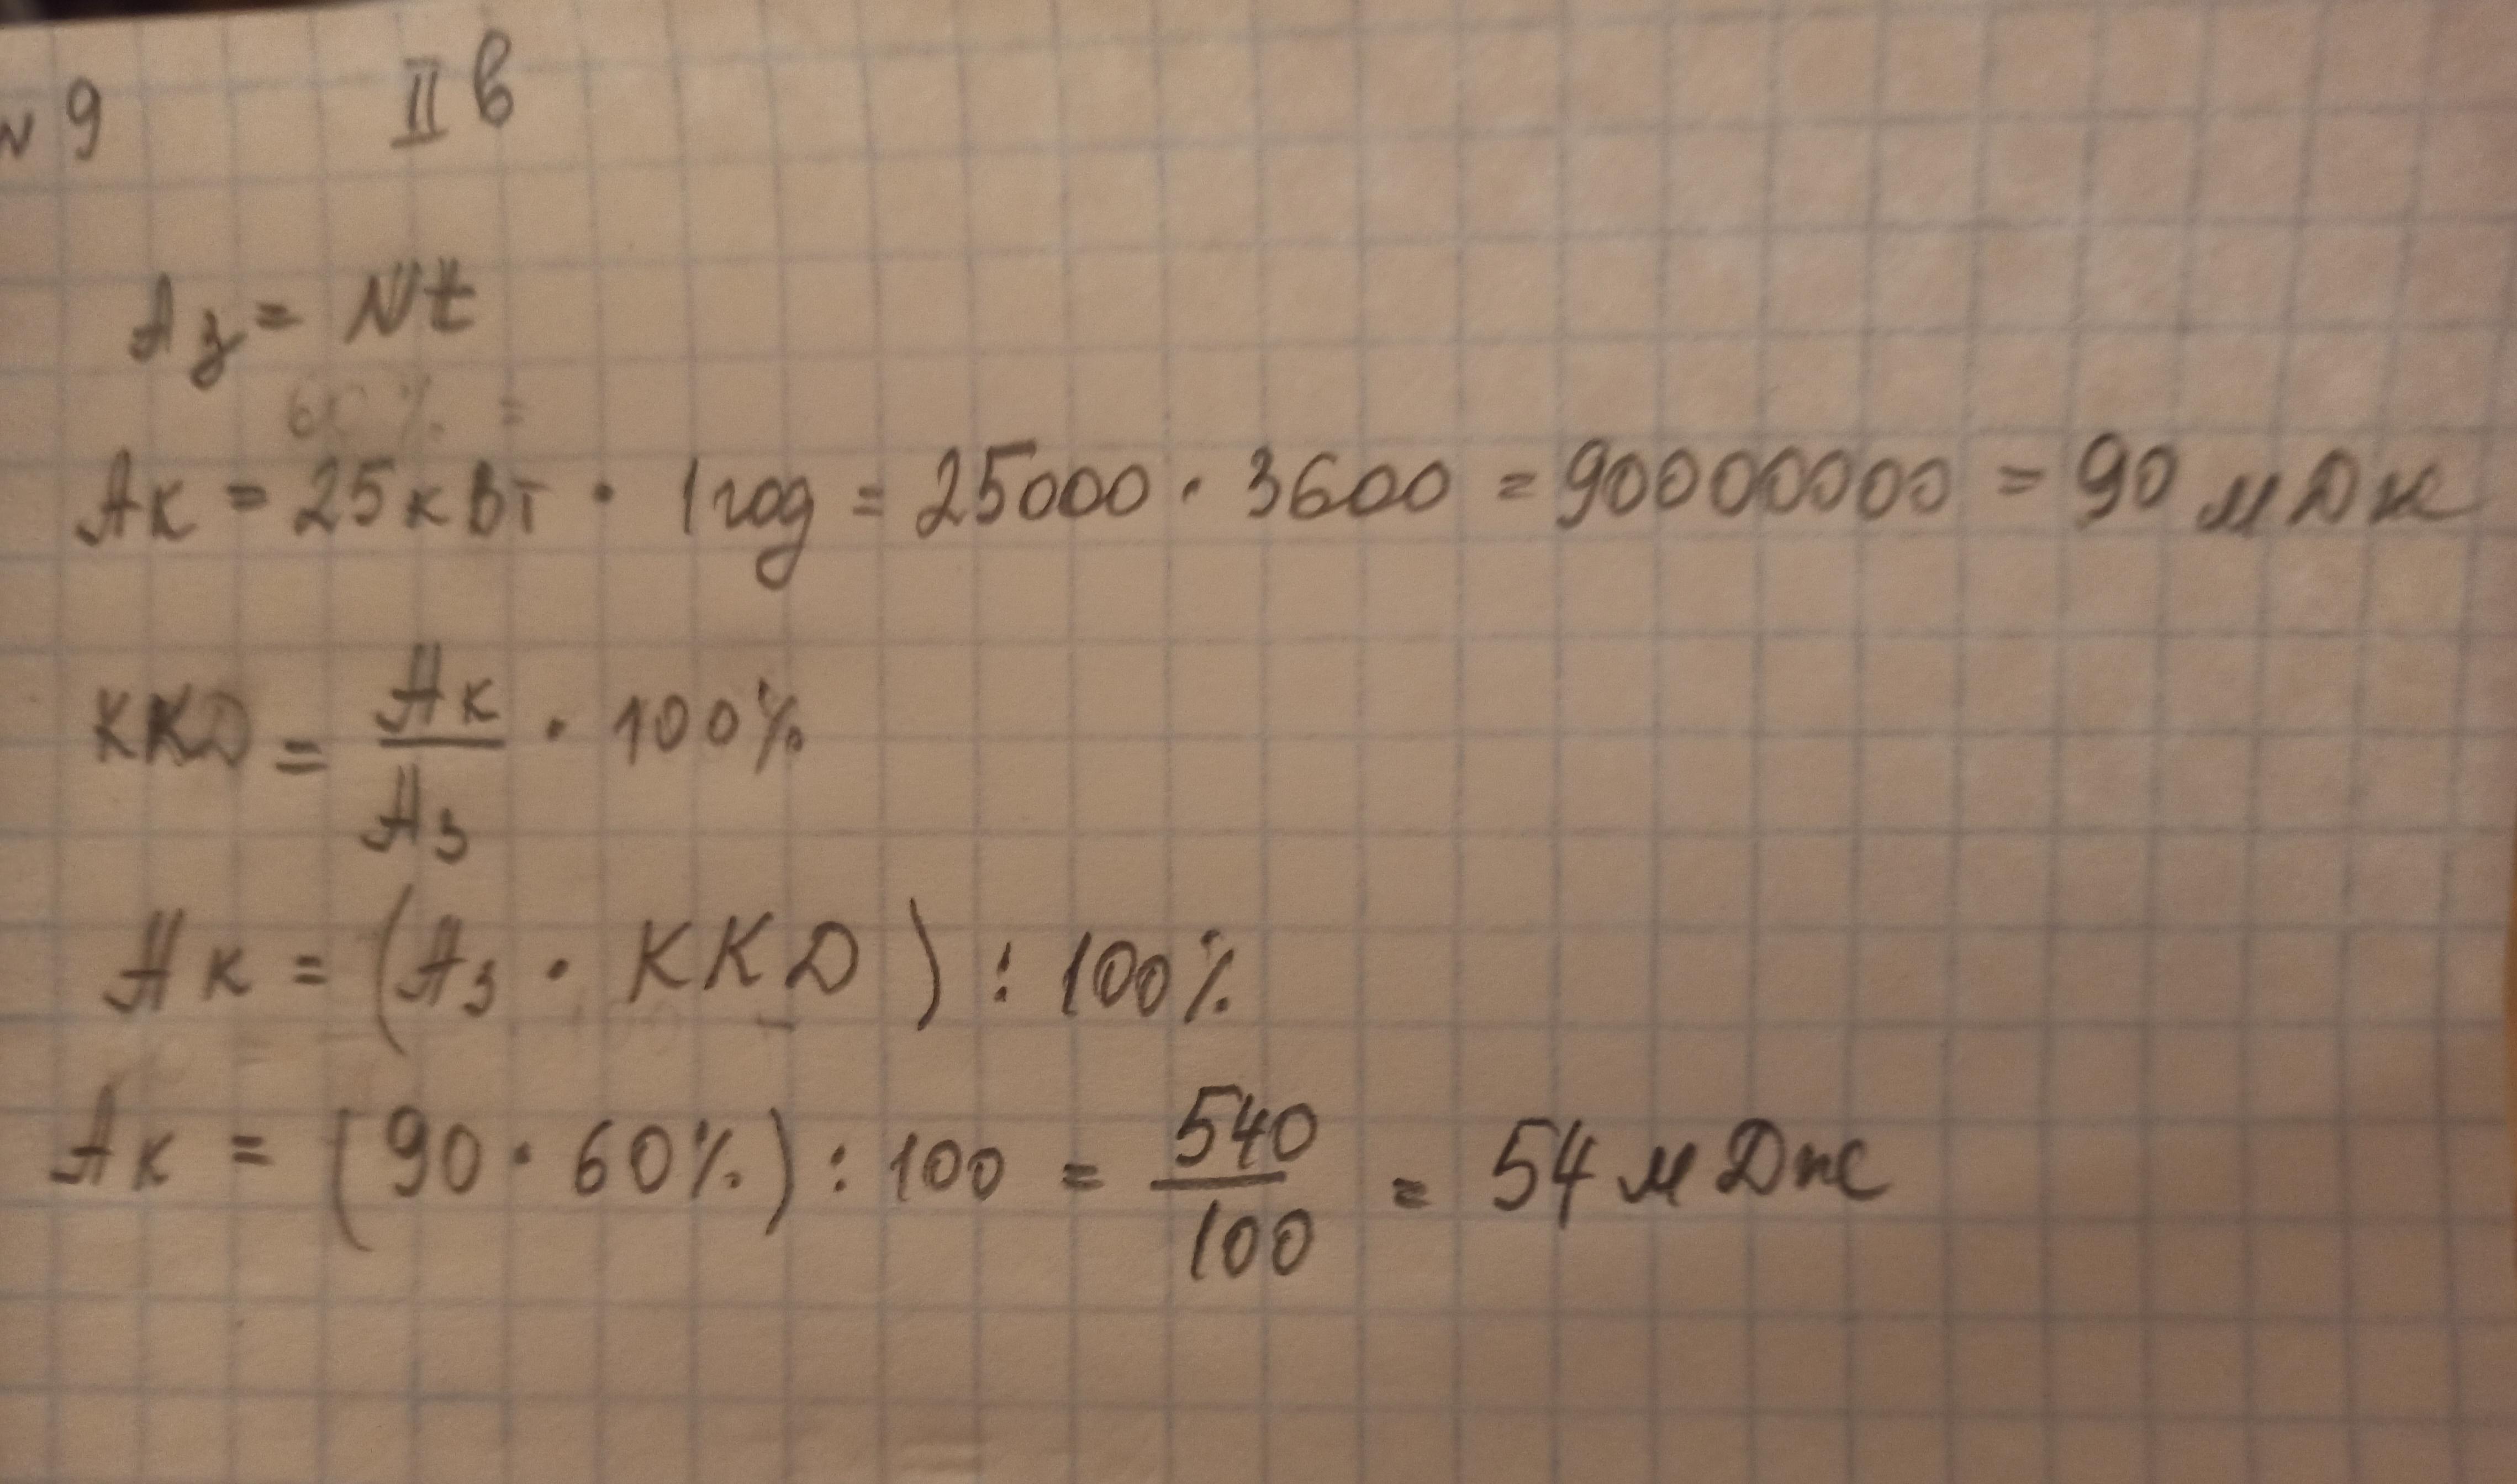 № 9 II в
Aз = Nt
60 % =
Aк = 25 кВт · 1 год = 25000 · 3600 = 90000000 = 90 мДж
ККД = Aк / Aз · 100%
Aк = (Aз · ККД) : 100%
Aк = (90 · 60%) : 100 = 540 / 100 = 54 мДж